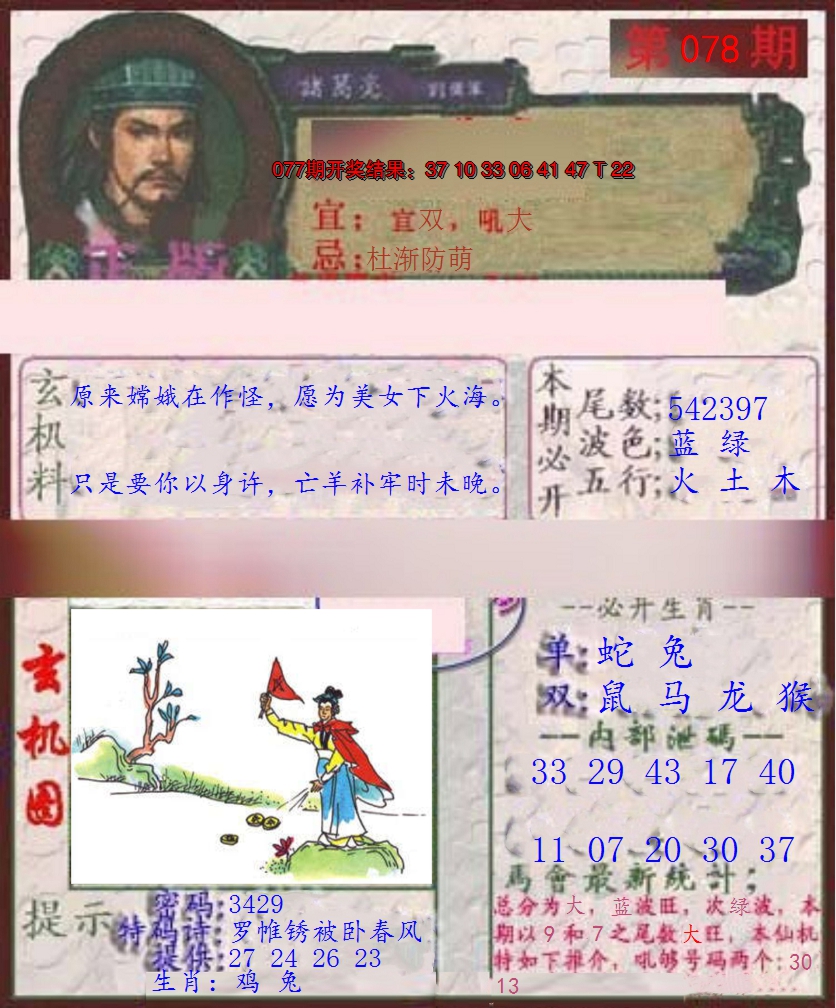 第 078 期
諸葛亮
077期开奖结果：37 10 33 06 41 47 T 22
宜：宜双，吼大
忌：杜渐防萌
正版
玄机料
原来嫦娥在作怪，愿为美女下火海。
只是要你以身许，亡羊补牢时未晚。
本期必开
尾数；542397
波色；蓝 绿
五行；火 土 木
玄机图
--必开生肖--
单：蛇 兔
双：鼠 马 龙 猴
一内部泄碼一
33 29 43 17 40
11 07 20 30 37
馬會最新統計；
总分为大，蓝波旺，次绿波，本
期以9和7之尾数大旺，本仙机
特如下推介，吼够号码两个：30
13
提示
密码：3429
特码诗：罗帷锈被卧春风
提供：27 24 26 23
生肖：鸡 兔